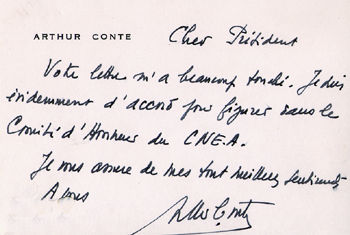 ARTHUR CONTE
Cher Président
Votre lettre m'a beaucoup touché. Je suis
évidemment d'accord pour figurer dans le
Comité d'Honneur du CNE.A.
Je vous assure de mes tout meilleurs sentiments
A vous